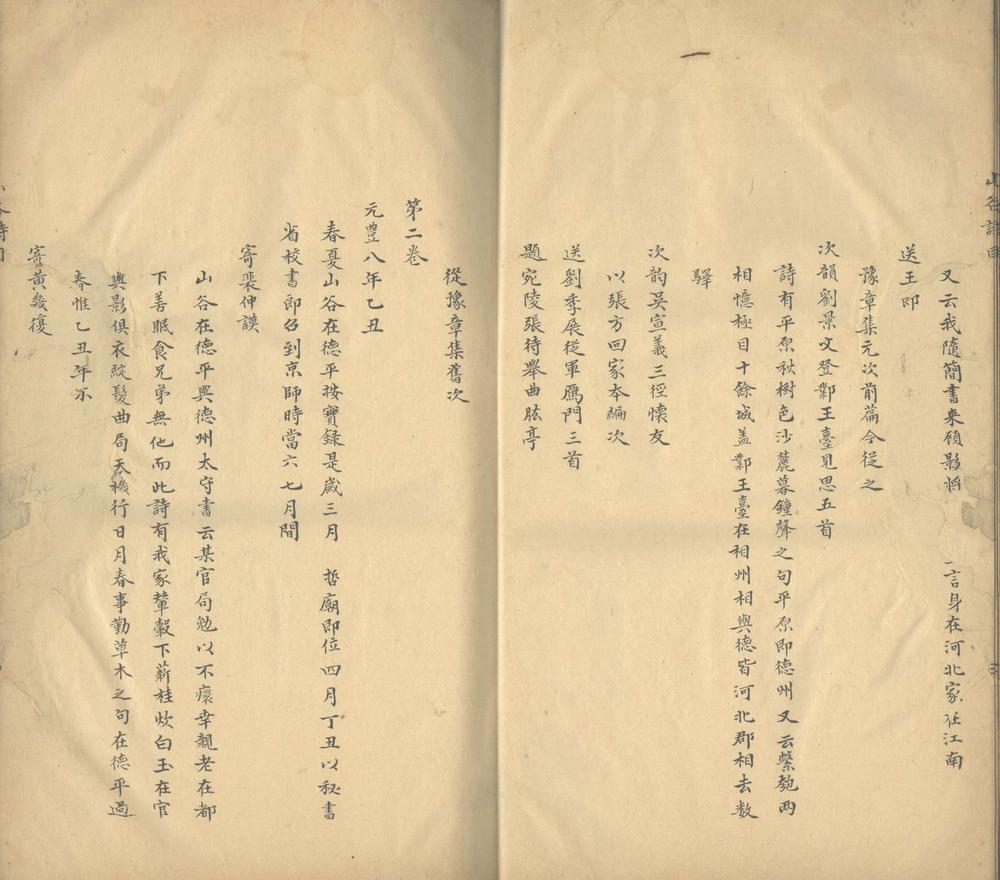 又云我隨簡書來顧影將 一言身在河北家在江南
送王郎
豫章集元次前篇今從之
次韻劉景文登鄴王臺見思五首
詩有平原秋樹色沙麓暮鐘聲之句平原即德州又云繫匏兩
相憶極目十餘城盖鄴王臺在相州相與德皆河北郡相去数
驛
次韵吳宣義三徑懷友
以張方回家本編次
送劉季展從軍鴈門三首
題宛陵張待舉曲肱亭
從豫章集舊次
第二卷
元豊八年乙丑
春夏山谷在德平按實録是歲三月 哲廟即位四月丁丑以秘書
省校書郎召到京師時當六七月間
寄裴仲謨
山谷在德平與德州太守書云某官局勉以不瘝幸親老在都
下善眠食兄弟無他而此詩有我家輦轂下薪桂炊白玉在官
與影俱衣綻髮曲局天機行日月春事勤草木之句在德平過
春惟乙丑年尓
寄黃幾復